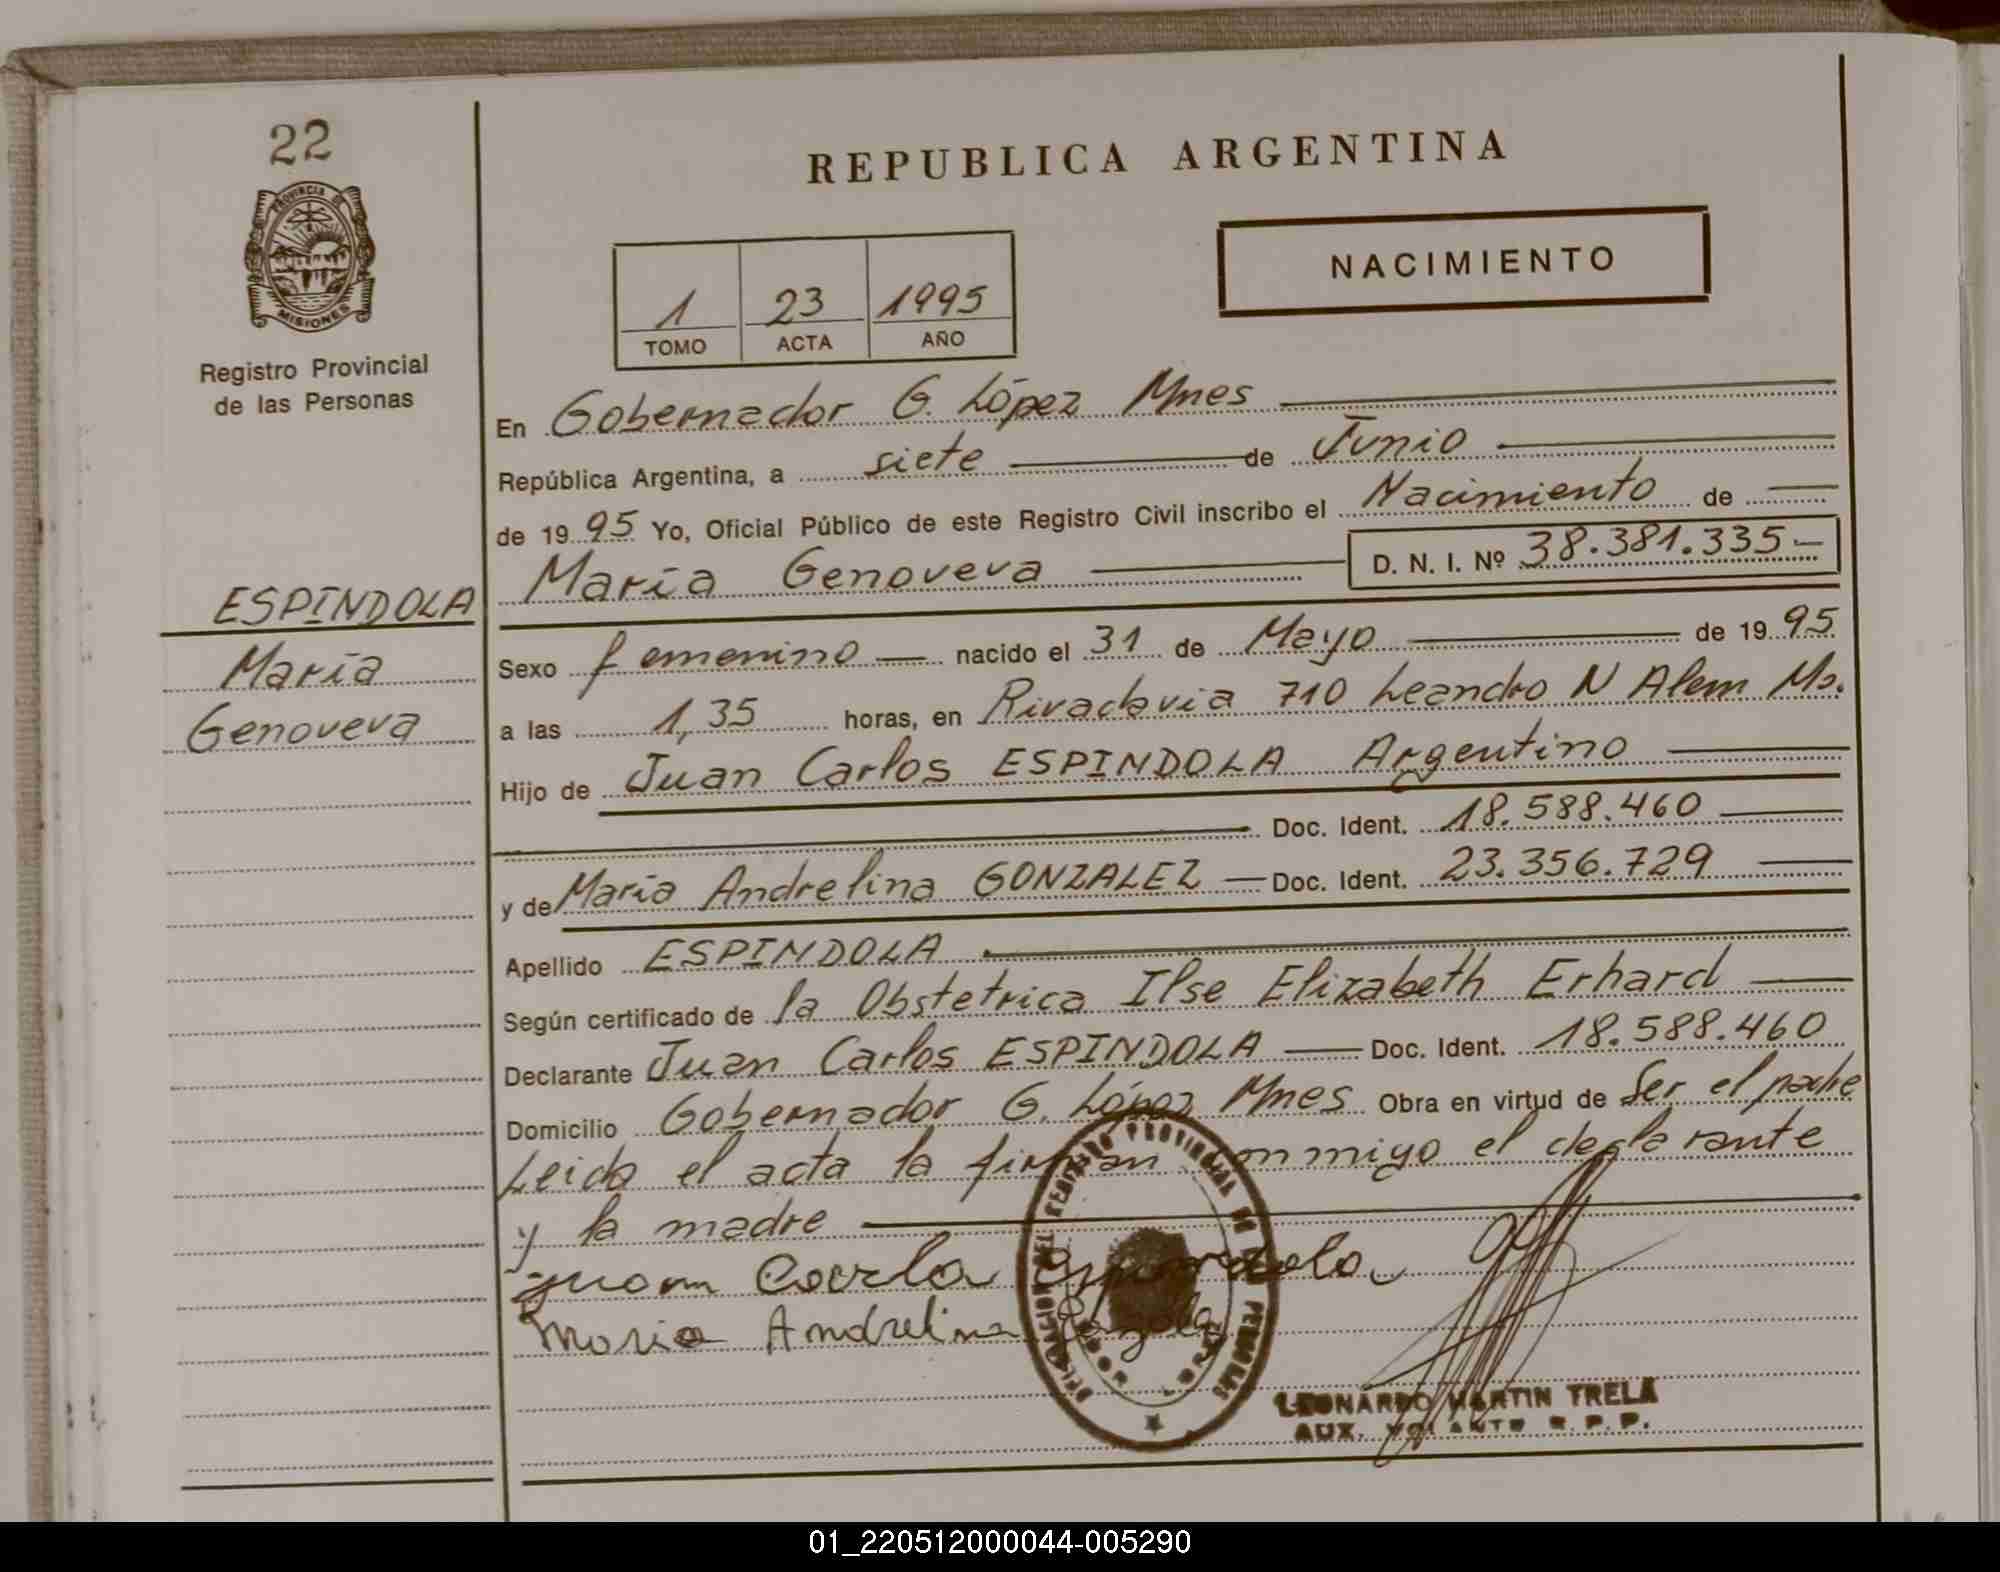 22
PROVINCIA DE
MISIONES
Registro Provincial
de las Personas
ESPINDOLA
María
Genoveva
REPUBLICA ARGENTINA
NACIMIENTO
1 23 1995
TOMO ACTA AÑO
En Gobernador G. López Mnes
República Argentina, a siete de Junio
de 1995 Yo, Oficial Público de este Registro Civil inscribo el Nacimiento de
María Genoveva D. N. I. Nº 38.381.335
Sexo femenino nacido el 31 de Mayo de 1995
a las 1,35 horas, en Rivadavia 710 Leandro N Alem Ms.
Hijo de Juan Carlos ESPINDOLA Argentino
Doc. Ident. 18.588.460
y de María Andrelina GONZALEZ Doc. Ident. 23.356.729
Apellido ESPINDOLA
Según certificado de la Obstetrica Ilse Elizabeth Erhard
Declarante Juan Carlos ESPINDOLA Doc. Ident. 18.588.460
Domicilio Gobernador G. López Mnes Obra en virtud de Ser el padre
Leida el acta la firman conmigo el declarante
y la madre
Juan Carlo Espindola
Maria Andrelina Gonzalez
PROVINCIAL DE PERSONAS
LEONARDO MARTIN TRELA
AUX. VOLANTE R.P.P.
01_220512000044-005290